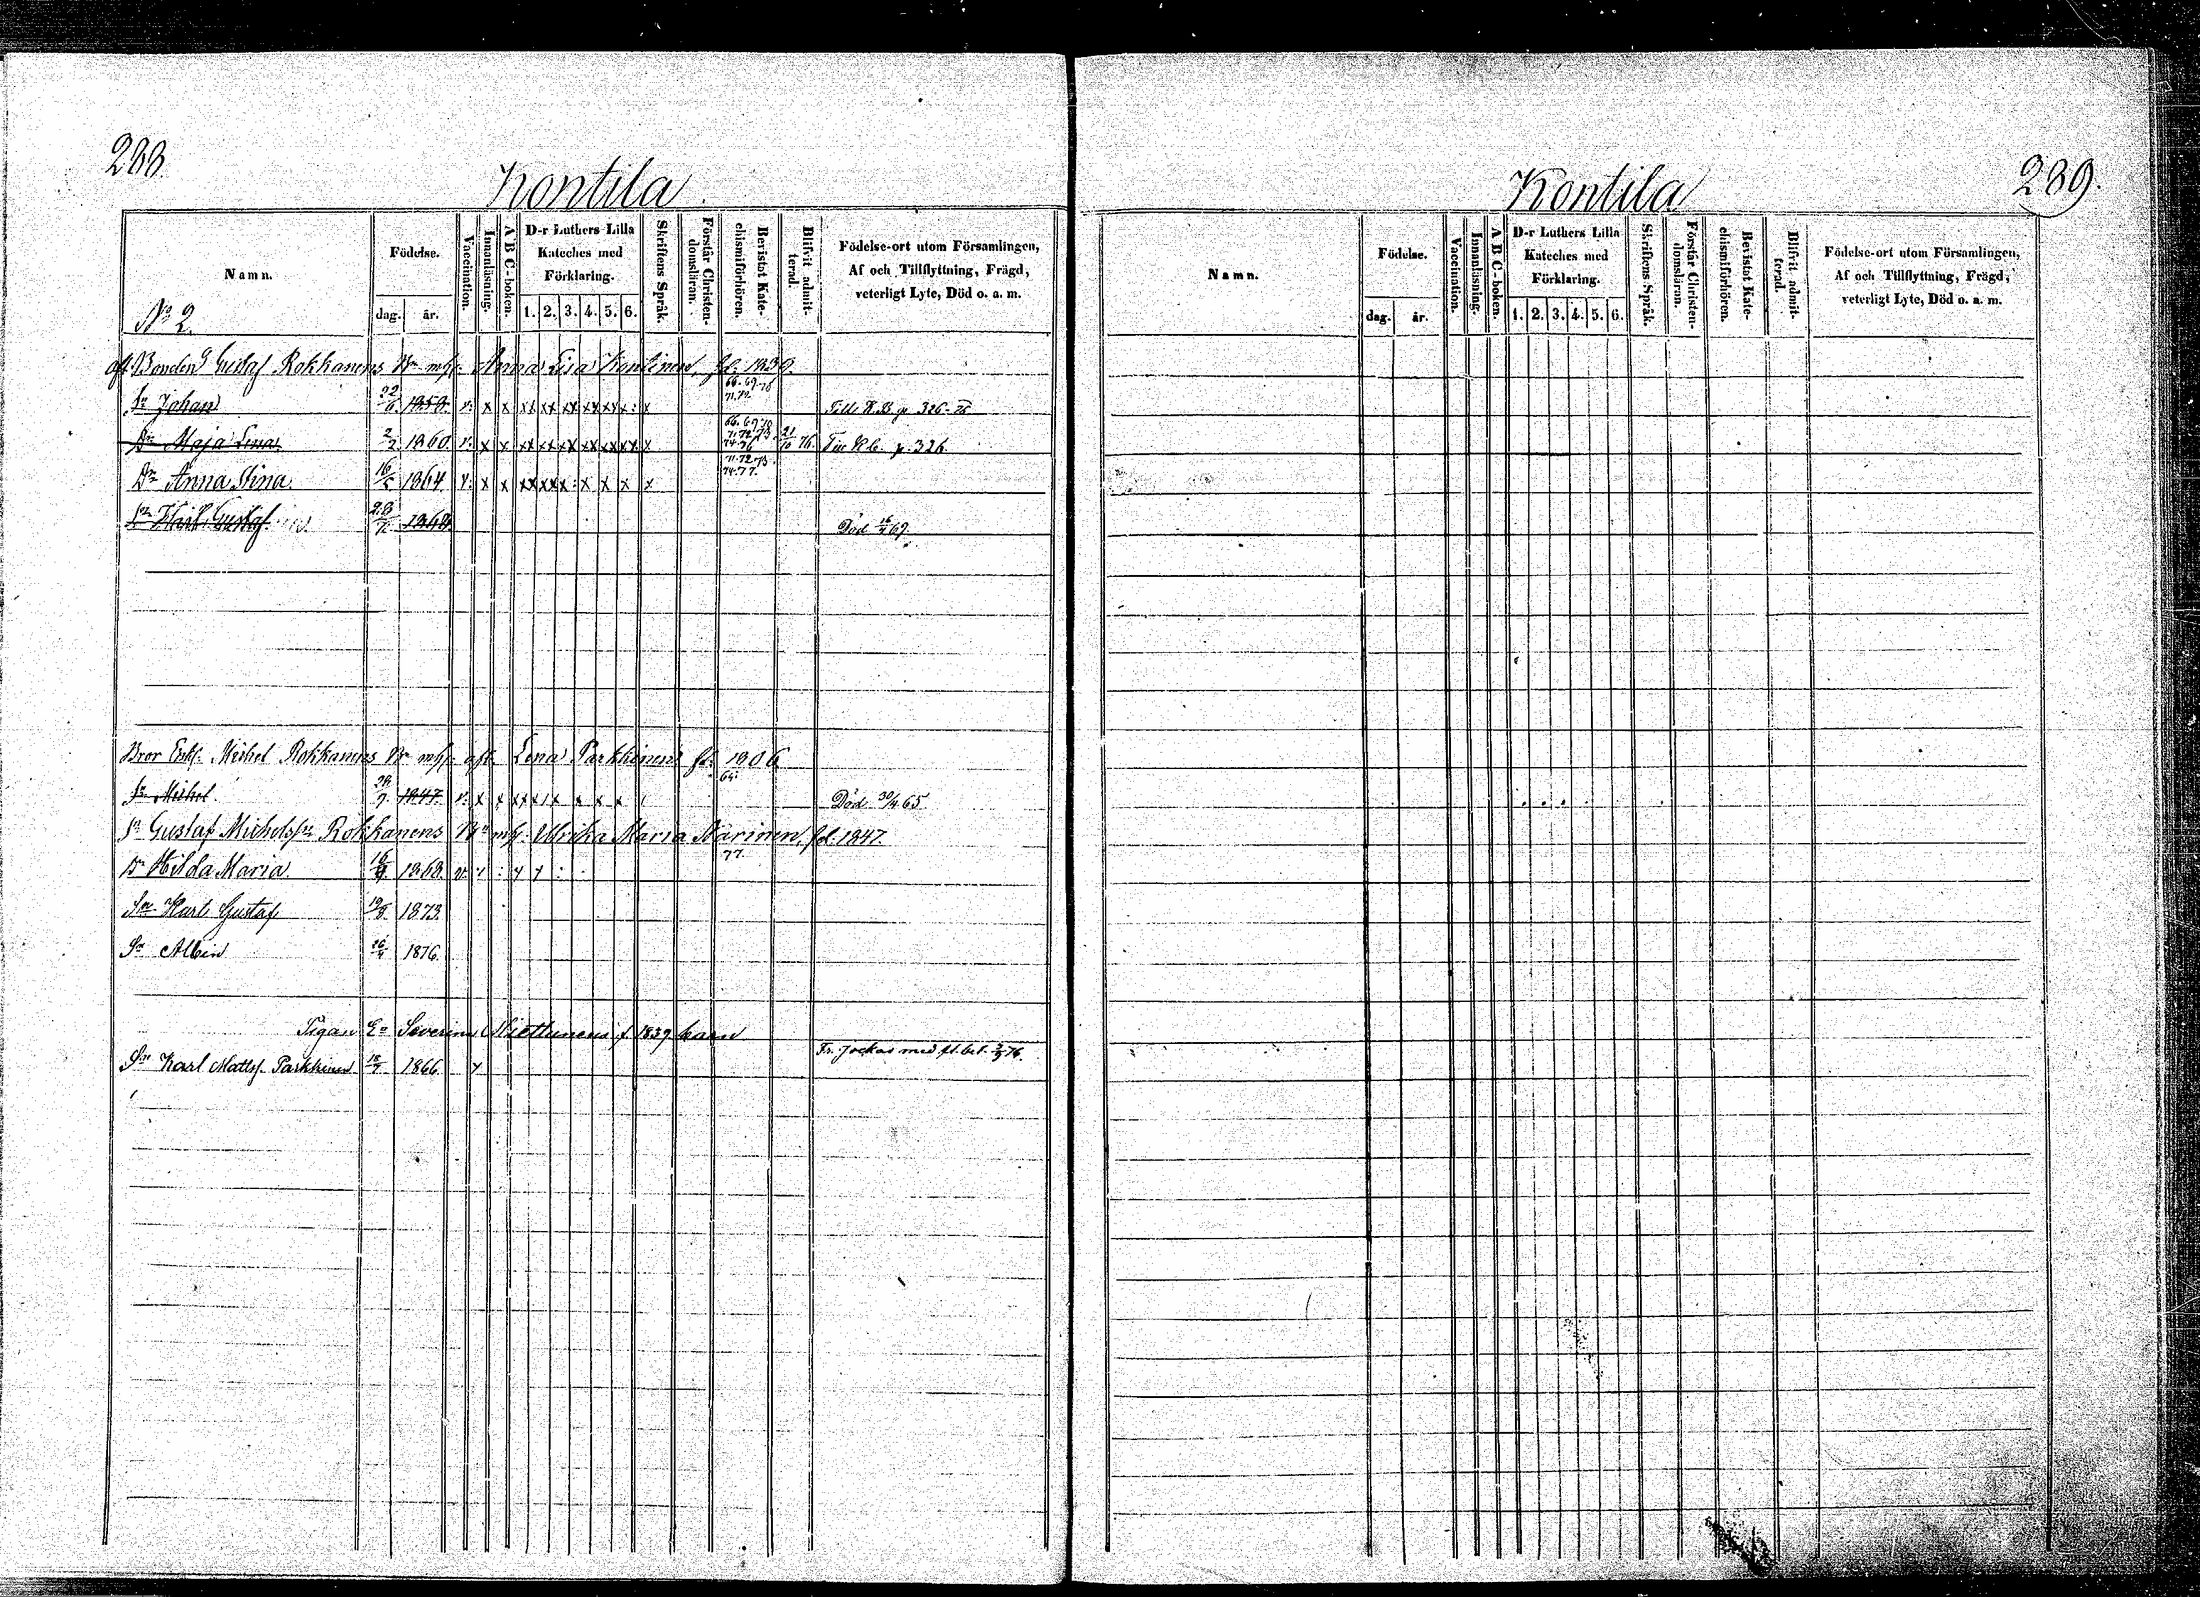 288.
Kontila
Namn.
Födelse.
dag. år.
Vaccination.
Innanläsning.
A B C-boken.
D-r Luthers Lilla
Kateches med
Förklaring.
1. 2. 3. 4. 5. 6.
Skriftens Språk.
Förstår Christen-
domsläran.
Bevistat Kate-
chismiförhören.
Blifvit admit-
terad.
Födelse-ort utom Församlingen,
Af och Tillflyttning, Frägd,
veterligt Lyte, Död o. a. m.
No 2.
afl. Bonden Gustaf Rokkanens Bn mh: Anna Lisa Kontinen, fd. 1839.
Sn Johan 22/6 1858. v: x x xx xx xx xx xx x: x 66. 69. 70 71. 72. Till K.B. p. 326-
Dr Maja Lena. 2/2 1860. v: x x xx xx xx xx xx xx x 66. 69. 70 71. 72. 73. 74. 76 21/10 76. Till Kb. p. 326
Dr Anna Stina. 16/5 1864. v: x x xx xx x: x x x x 71. 72. 73. 74. 77.
Sn Karl Gustaf. 28/12 1868. Död 15/4 69.
Bror Enkl. Michel Rokkanens Bn mh: afl. Lena Parkkinens fd: 1806
Sn Michel. 29/9 1847. v: x x xx x x x x 64: Död 30/4 65.
Sn Gustaf Michelssn Rokkanens Bn mh: Ulrika Maria Närinen, fd. 1847.
Dr Hilda Maria. 16/9 1868. v. 77.
Sn Karl Gustaf 19/8 1873.
Sn Albin 26/4 1876.
Pigan Ea Severina Miettunens f. 1839 barn
Sn Karl Mattsf. Parkkinen 18/7 1866. Fr. Jockas med fl. bet. 2/3 76.
289.
Kontila
Namn.
Födelse.
dag. år.
Vaccination.
Innanläsning.
A B C-boken.
D-r Luthers Lilla
Kateches med
Förklaring.
1. 2. 3. 4. 5. 6.
Skriftens Språk.
Förstår Christen-
domsläran.
Bevistat Kate-
chismiförhören.
Blifvit admit-
terad.
Födelse-ort utom Församlingen,
Af och Tillflyttning, Frägd,
veterligt Lyte, Död o. a. m.